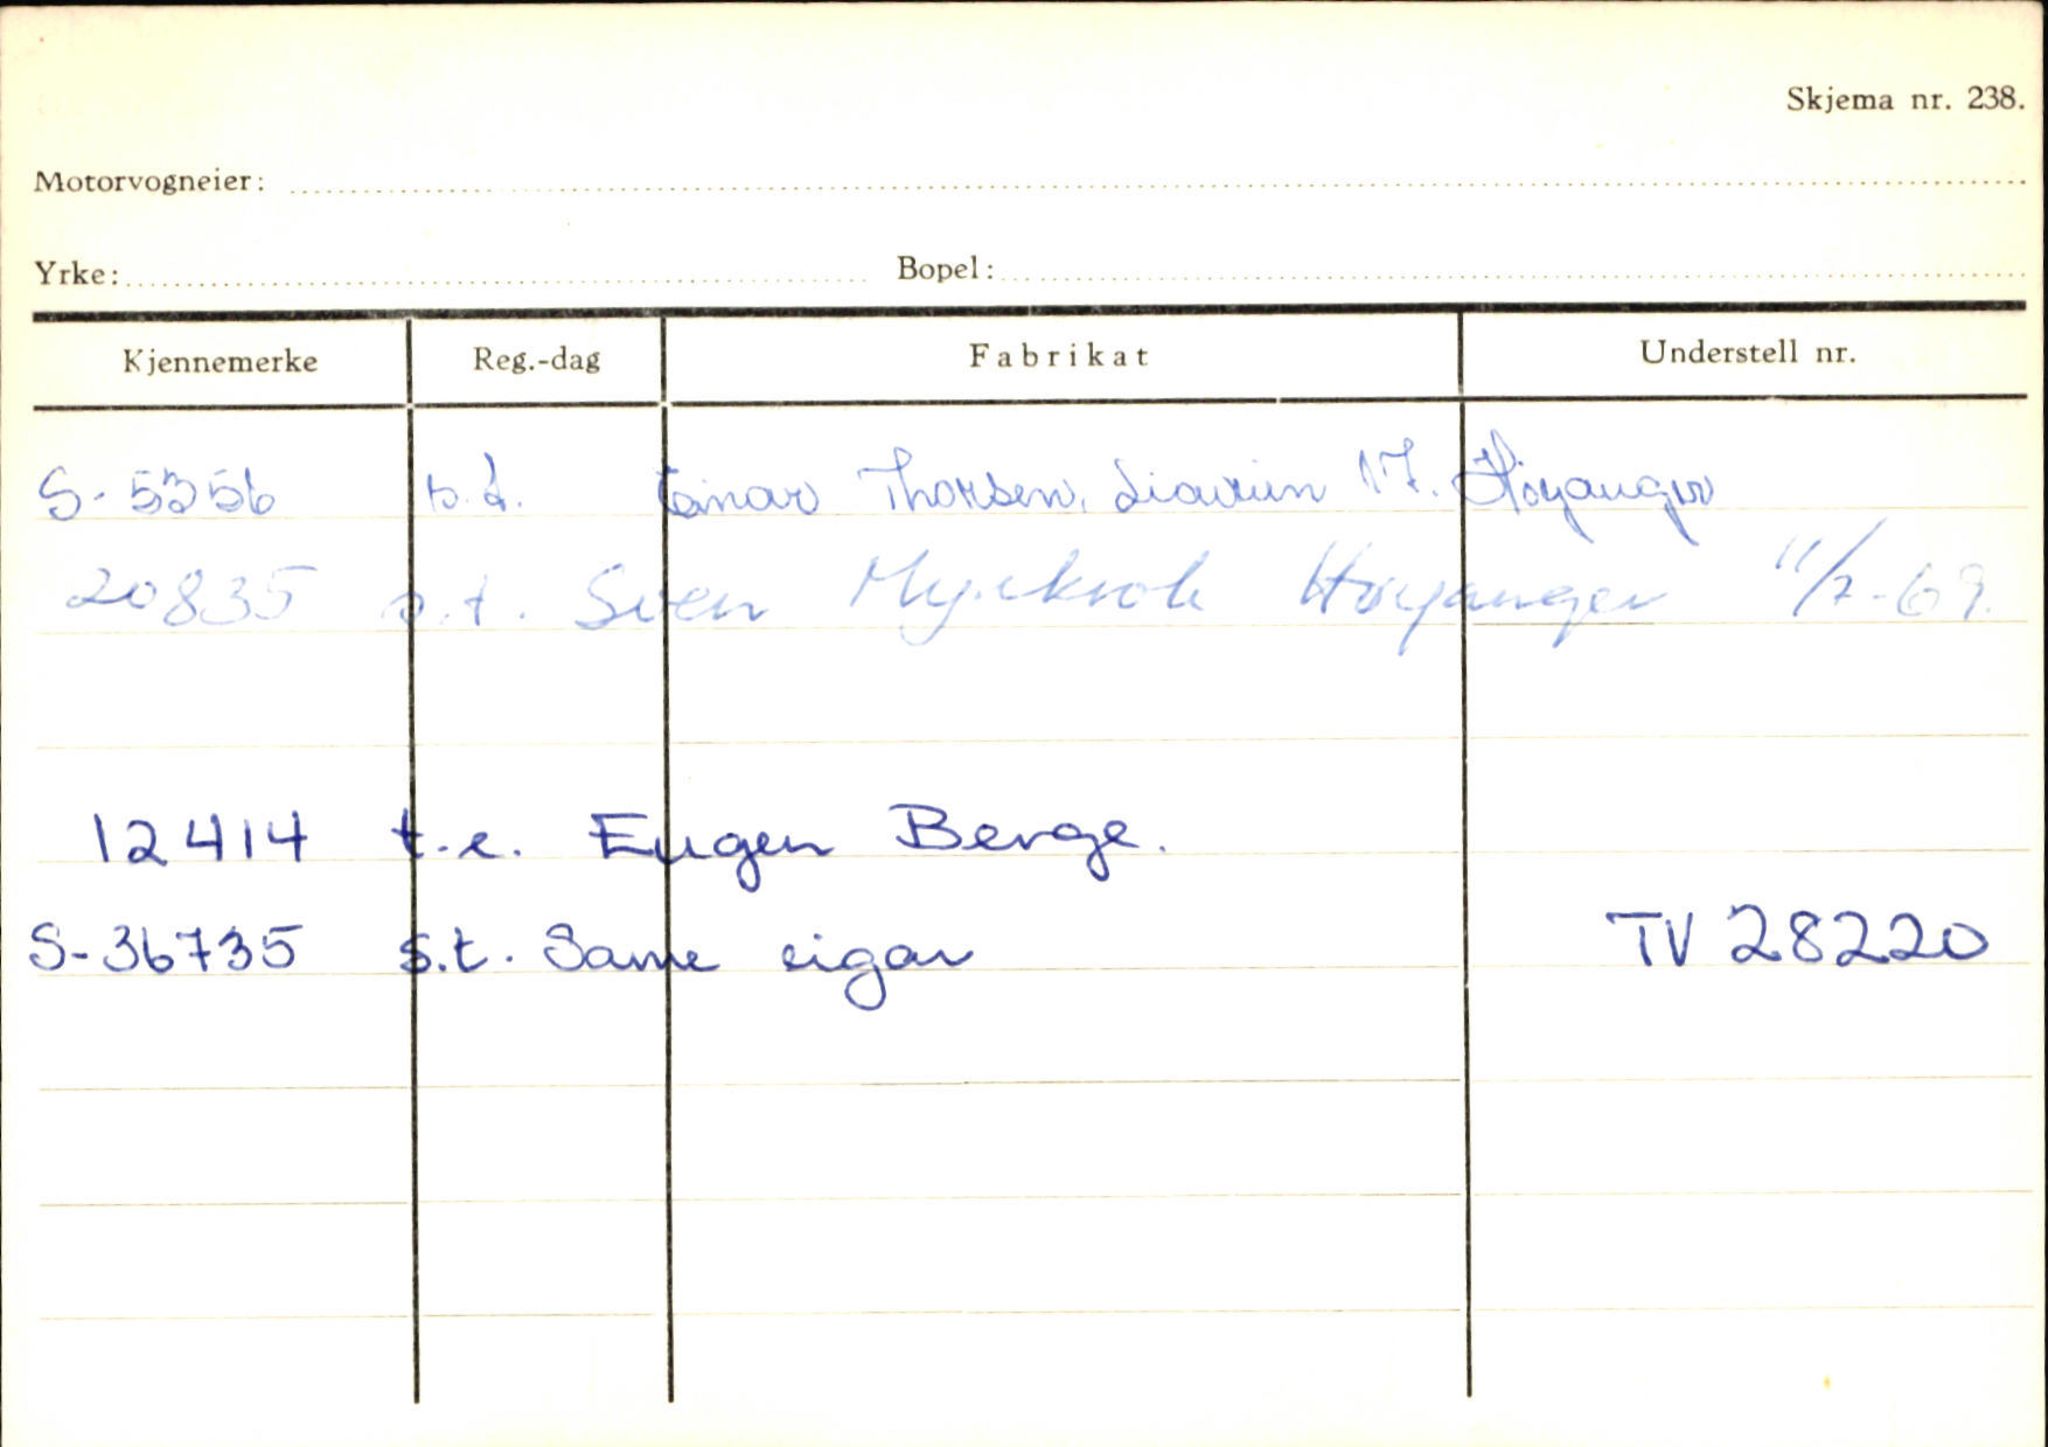 Skjema nr. 238.
Motorvogneier:
Yrke: Bopel:
Kjennemerke Reg.-dag Fabrikat Understell nr.
S-5356 s.t. Einar Thorsen, 17. Høyanger
20835 s.t. Sven Høyanger 11/7-69.
12414 t.e. Eugen Berge.
S-36735 s.t. Same eigar TV 28220